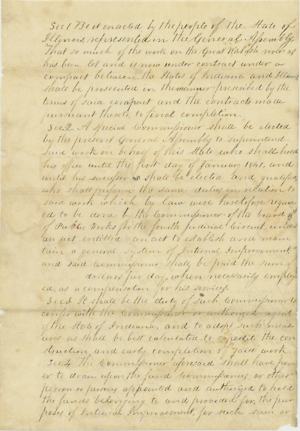 Sec 1 Be it enacted by the people of the State of
Illinois represented in the General Assembly
That so much of the work on the Great Wabash as
has been let and is now under contract under a
compact between the States of Indiana and Illinois
shall be prosecuted in the manner prescribed by the
terms of said compact and the contracts made
pursuant thereto to final completion.
Sec 2. A special Commissioner shall be elected
by the present General Assembly to superintend
said work on behalf of this State who shall hold
his office until the first day of January 1841, and
until his successor shall be elected and qualified
who shall perform the same duties in relation to
said work which by law were heretofore requi
red to be done by the Commissioner of the board
of Public Works for the fourth Judicial Circuit, under
an act entitled "an act to establish and main
tain a general system of Internal Improvement
and said Commissioner shall be paid the sum of
dollars per day, when necessarily employ
ed, as a compensation for his services.
Sec 3. It shall be the duty of such Commissioner to
confer with the Commissioner or authorized agent
of the State of Indiana, and to adopt such meas
ures as shall be best calculated to expedite the con
struction and early completion of said work.
Sec 4. The Commissioner aforesaid shall have pow
er to draw upon the fund Commissioners or other
person or persons appointed and authorized to hold
the funds belonging to and provided for the pur
poses of Internal Improvement, for such sum or